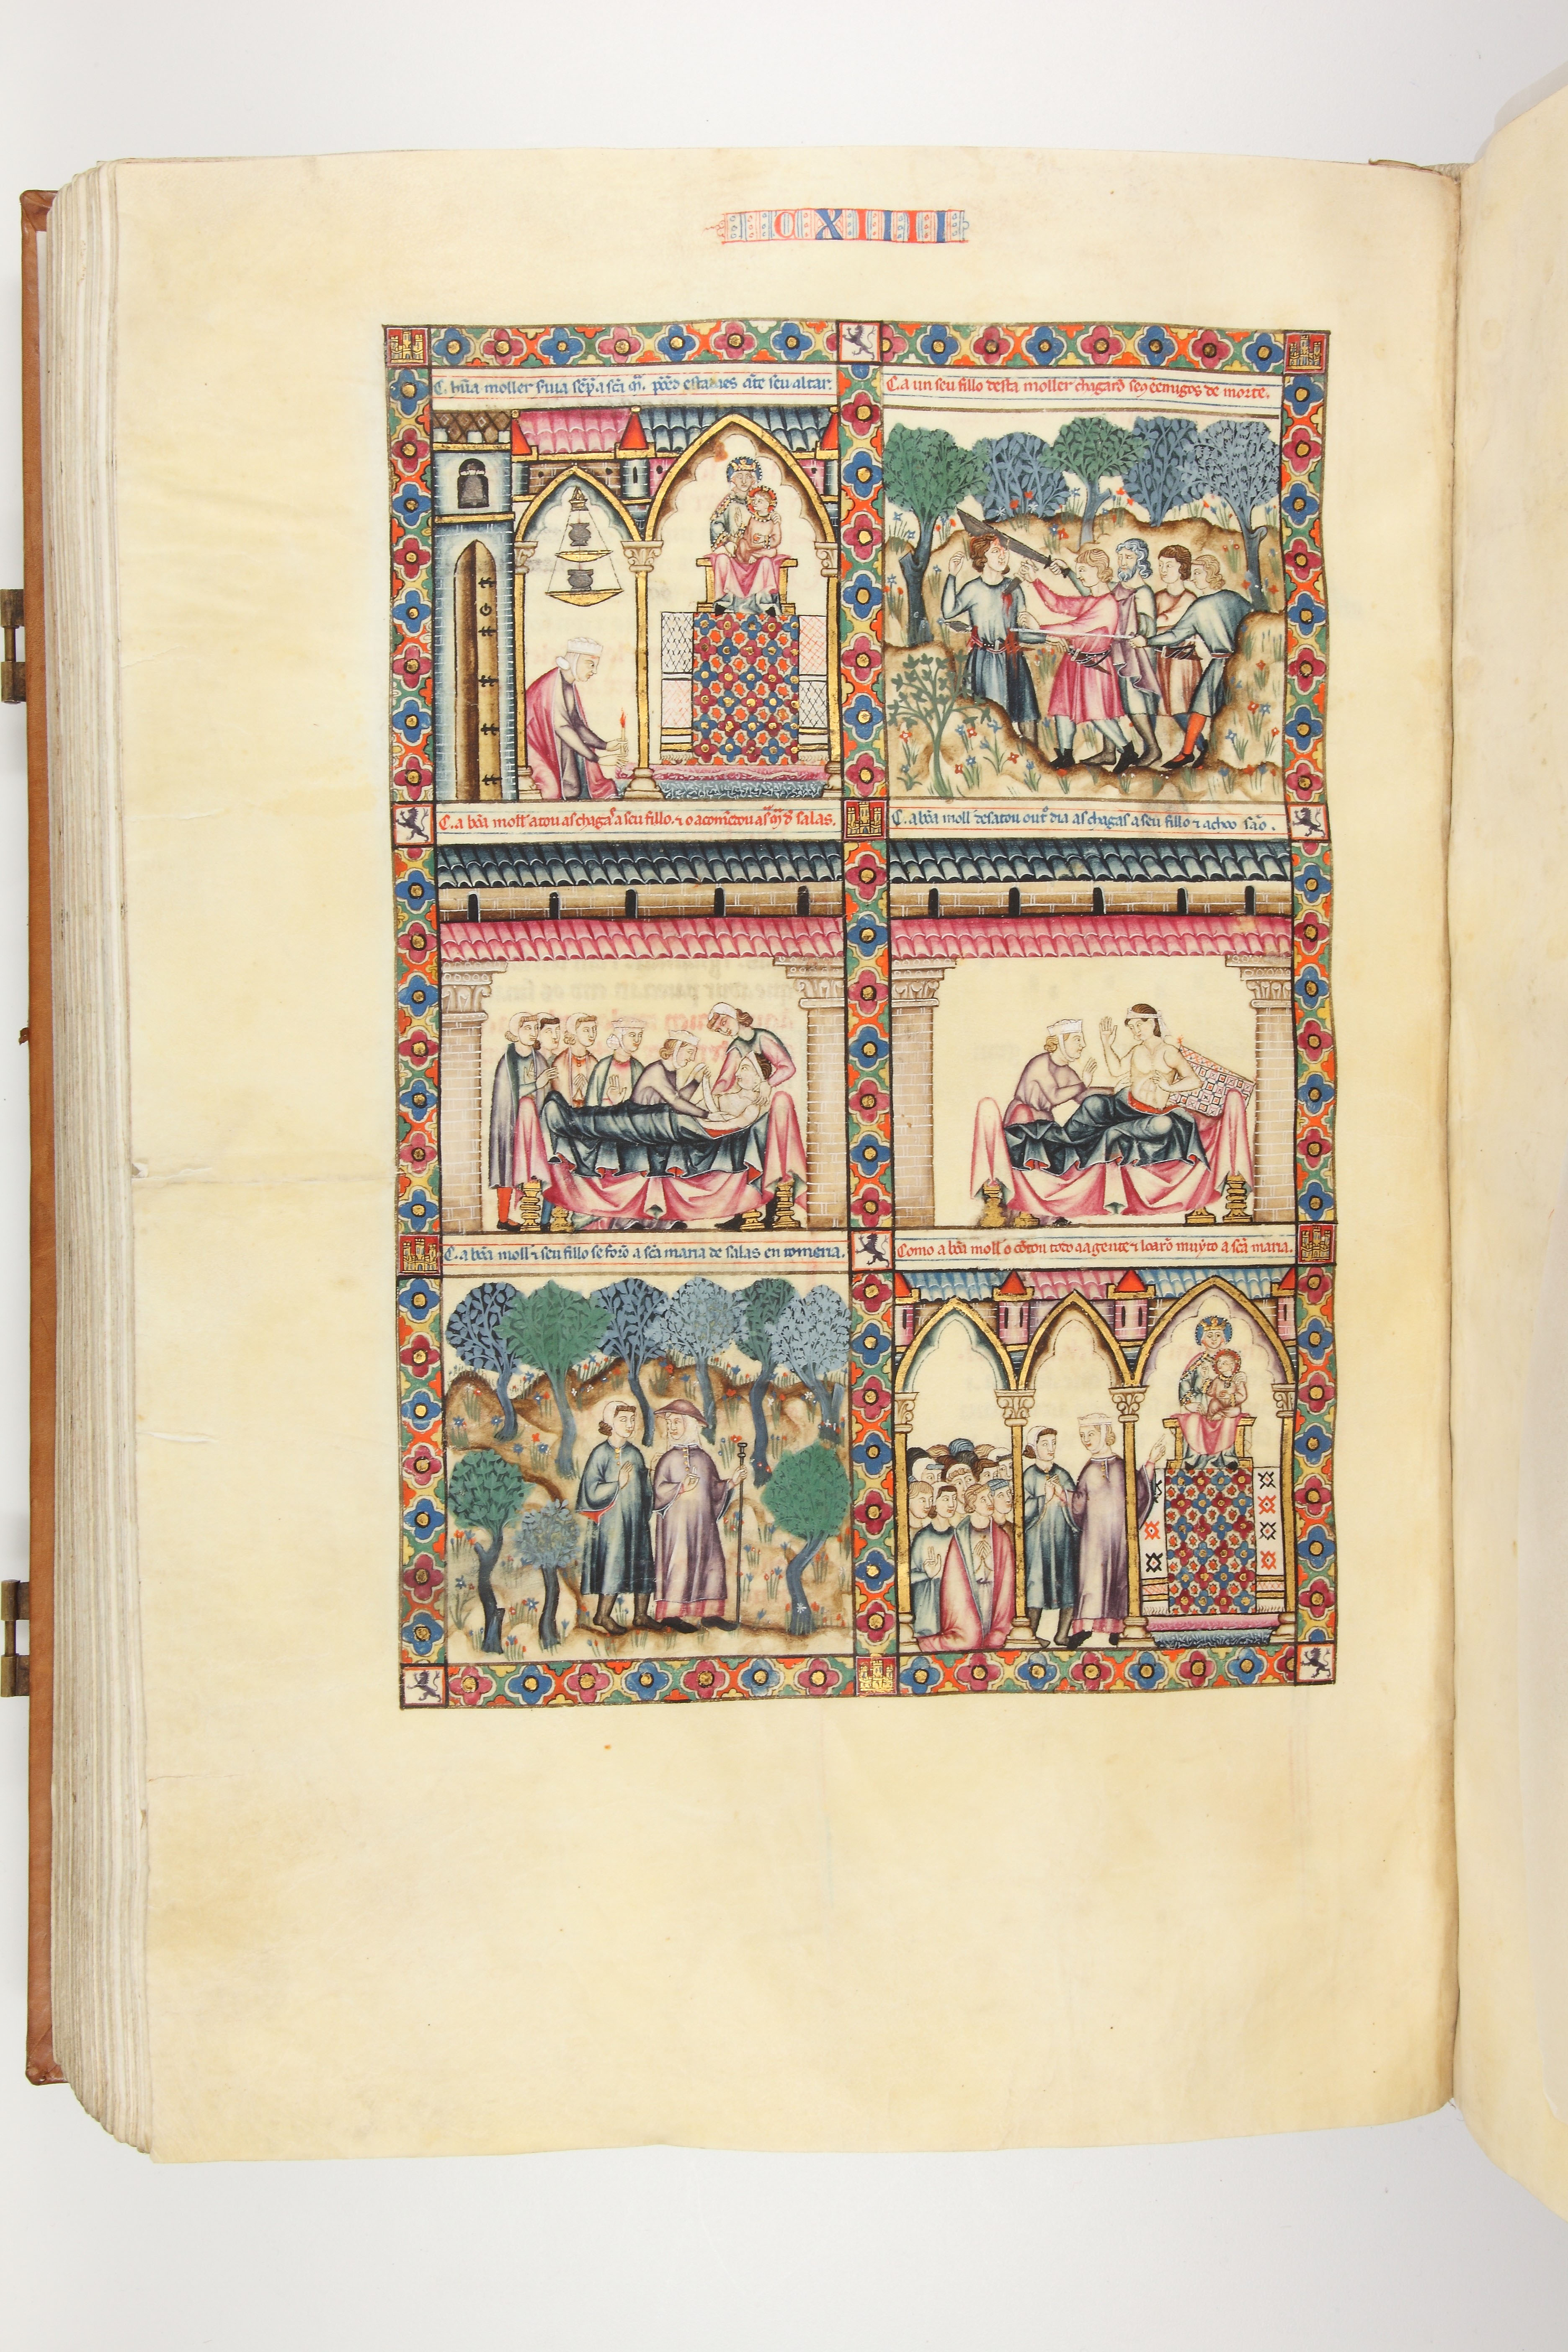 CXIIII
C. hũa moller s'uia sẽp̃ a sc̃a m̃. põẽdo estadaes ãte seu altar.
C. a un seu fillo desta moller chagarõ seus ẽemigos de morte.
C. a bõa moll' atou as chagas a seu fillo. ⁊ o acomẽdou a s̃ m̃ d' salas.
C. a bõa moll' desatou out° dia as chagas a seu fillo ⁊ achoo são.
C. a bõa moll' ⁊ seu fillo se forõ a sc̃a maria de salas en romeria.
Como a bõa moll' o cõtou toda a gente ⁊ loarõ muyto a sc̃a maria.